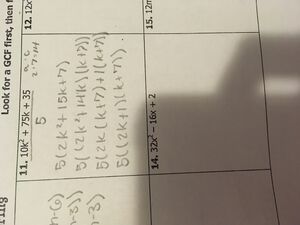 Look for a GCF first, then f
11. 10k² + 75k + 35
12. 12x
5
a·c
2·7=14
5(2k² + 15k+7)
5((2k²+14k)(k+7))
5(2k(k+7)+1(k+7))
5((2k+1)(k+7))
14. 32x² – 16x + 2
15. 12m
ring
n-6)
n-3))
n-3)